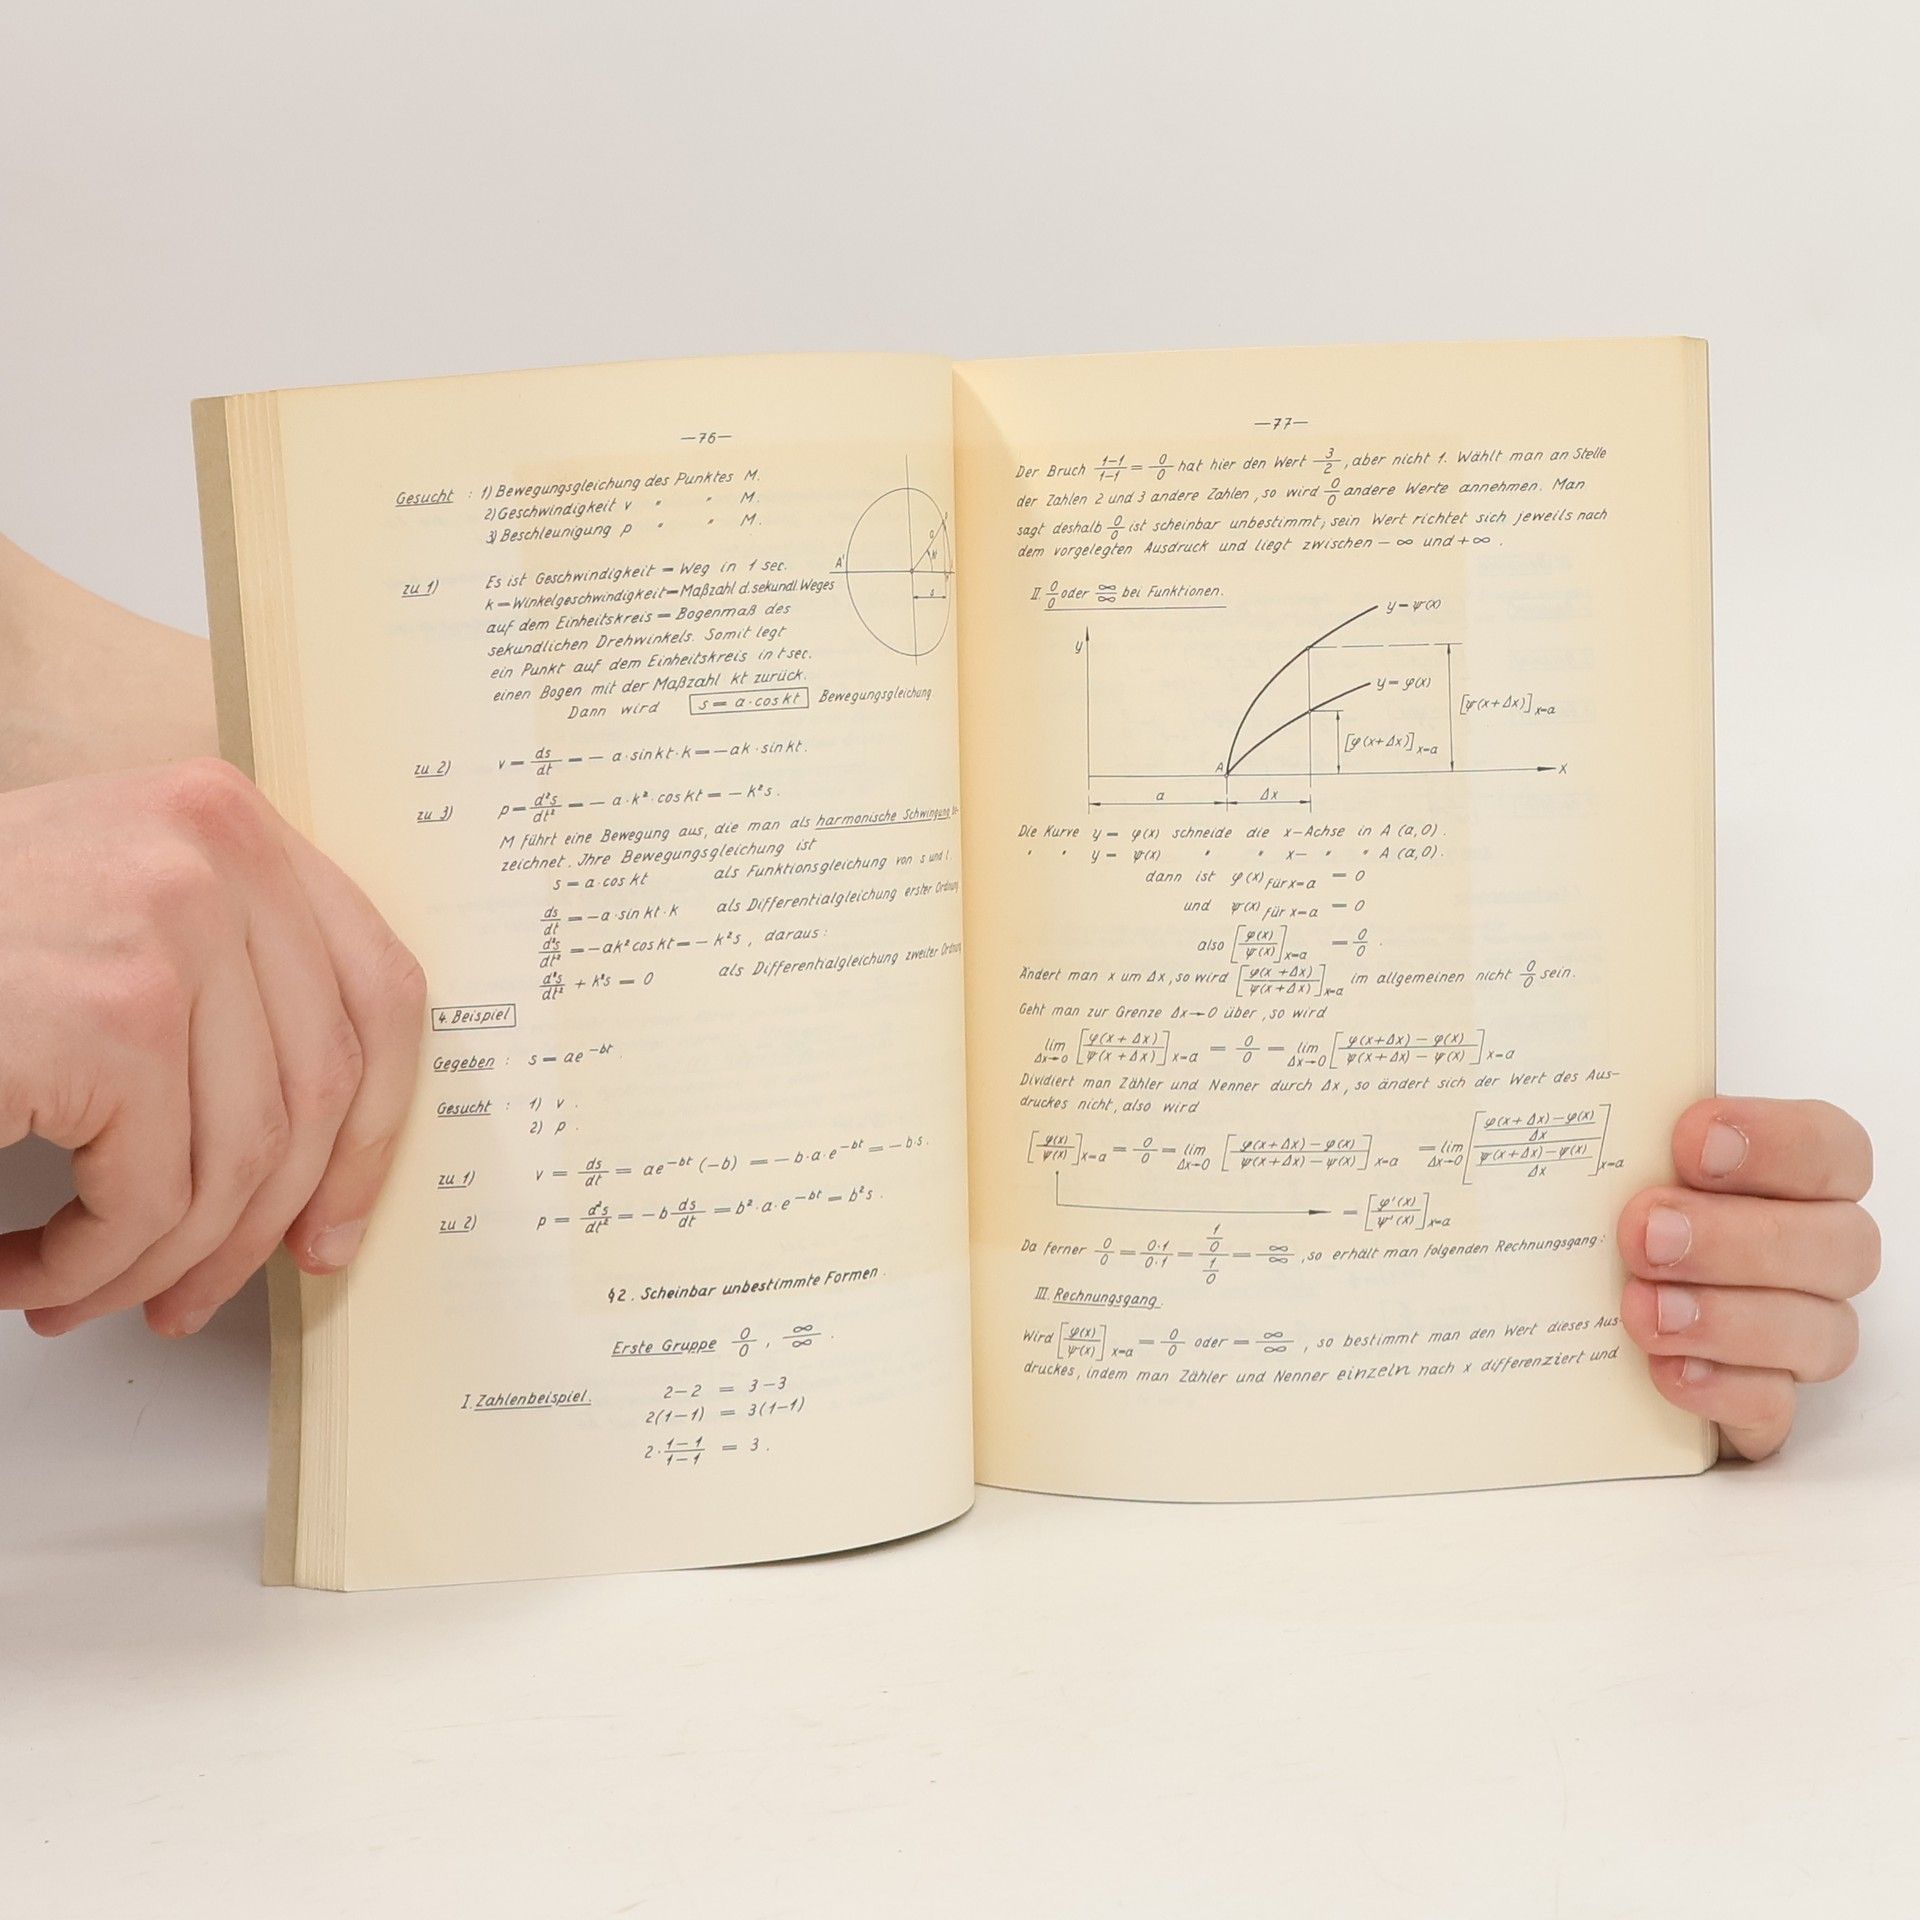 —76—
Gesucht : 1) Bewegungsgleichung des Punktes M.
2) Geschwindigkeit v " " M.
3) Beschleunigung p " " M.
A'
a
s
zu 1) Es ist Geschwindigkeit = Weg in 1 sec.
k = Winkelgeschwindigkeit = Maßzahl d. sekundl. Weges
auf dem Einheitskreis = Bogenmaß des
sekundlichen Drehwinkels. Somit legt
ein Punkt auf dem Einheitskreis in t sec.
einen Bogen mit der Maßzahl kt zurück.
Dann wird s = a·cos kt Bewegungsgleichung.
zu 2) v = ds/dt = − a·sin kt·k = −ak·sin kt.
zu 3) p = d²s/dt² = − a·k²·cos kt = − k²s.
M führt eine Bewegung aus, die man als harmonische Schwingung be-
zeichnet. Ihre Bewegungsgleichung ist
s = a·cos kt als Funktionsgleichung von s und t
ds/dt = −a·sin kt·k als Differentialgleichung erster Ordnung
d²s/dt² = −ak² cos kt = − k²s , daraus:
d²s/dt² + k²s = 0 als Differentialgleichung zweiter Ordnung
4. Beispiel
Gegeben : s = ae^−bt .
Gesucht : 1) v .
2) p .
zu 1) v = ds/dt = ae^−bt (−b) = − b·a·e^−bt = − b·s.
zu 2) p = d²s/dt² = −b ds/dt = b²·a·e^−bt = b²s .
§2. Scheinbar unbestimmte Formen.
Erste Gruppe 0/0 , ∞/∞ .
I. Zahlenbeispiel. 2−2 = 3−3
2(1−1) = 3(1−1)
2·(1−1)/(1−1) = 3 .
—77—
Der Bruch (1−1)/(1−1) = 0/0 hat hier den Wert 3/2 , aber nicht 1. Wählt man an Stelle
der Zahlen 2 und 3 andere Zahlen , so wird 0/0 andere Werte annehmen. Man
sagt deshalb 0/0 ist scheinbar unbestimmt; sein Wert richtet sich jeweils nach
dem vorgelegten Ausdruck und liegt zwischen − ∞ und + ∞ .
II. 0/0 oder ∞/∞ bei Funktionen.
y
y = ψ(x)
y = φ(x)
[ψ(x+Δx)] x=a
[φ(x+Δx)] x=a
A
x
a
Δx
Die Kurve y = φ(x) schneide die x−Achse in A (a,0) .
" " y = ψ(x) " " x− " " A (a,0) .
dann ist φ(x) für x=a = 0
und ψ(x) für x=a = 0
also [φ(x)/ψ(x)] x=a = 0/0 .
Ändert man x um Δx, so wird [φ(x+Δx)/ψ(x+Δx)] x=a im allgemeinen nicht 0/0 sein.
Geht man zur Grenze Δx→0 über , so wird
lim Δx→0 [φ(x+Δx)/ψ(x+Δx)] x=a = 0/0 = lim Δx→0 [(φ(x+Δx) − φ(x))/(ψ(x+Δx) − ψ(x))] x=a
Dividiert man Zähler und Nenner durch Δx, so ändert sich der Wert des Aus-
druckes nicht, also wird
[φ(x)/ψ(x)] x=a = 0/0 = lim Δx→0 [(φ(x+Δx) − φ(x))/(ψ(x+Δx) − ψ(x))] x=a = lim Δx→0 [((φ(x+Δx)−φ(x))/Δx)/((ψ(x+Δx)−ψ(x))/Δx)] x=a
= [φ'(x)/ψ'(x)] x=a
Da ferner 0/0 = 0·1/0·1 = (1/0)/(1/0) = ∞/∞ , so erhält man folgenden Rechnungsgang:
III. Rechnungsgang.
Wird [φ(x)/ψ(x)] x=a = 0/0 oder = ∞/∞ , so bestimmt man den Wert dieses Aus-
druckes, indem man Zähler und Nenner einzeln nach x differenziert und